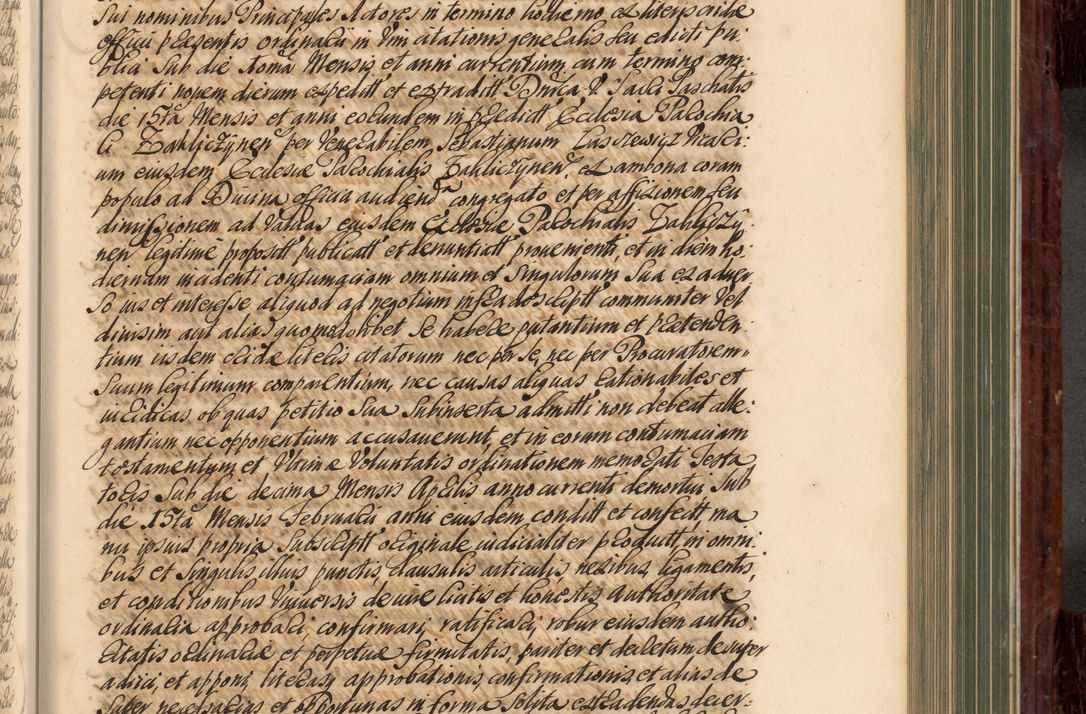 Sui nominibus Principales Actores in termino hodierno, ex literis cridae
officii praesentis ordinarii in vim citationis generalis seu edicti pu:
blici sub die 10ma Mensis et anni currentium cum termino com:
petenti novem dierum expeditt et extraditt Dnica Paschatis
die 15ta Mensis et anni eorundem in praedictt Ecclesia Parochia
li Zakliczynen per Venerabilem Sebastianum Vicari:
um eiusdem Ecclesiae Parochialis Zakliczynen, ex ambona coram
populo ad Divina officia audiend congregato et per affixionem seu
dimissionem ad valvas eiusdem Ecclesiae Parochialis Zakliczy:
nen legitime propositt publicatt et denuntiatt provenienti, et in diem ho:
diernam incidenti contumaciam omnium et singulorum sua ex adver
so ius et interesse aliquod ad negotium infradescriptt communiter vel
divisim aut alias quomodolibet se habere putantium et praetenden:
tium iisdem cridae literis citatorum nec per se, nec per Procuratorem
suum legitimum comparentium, nec causas aliquas rationabiles et
iuridicas ob quas petitio sua subinserta admitti non debeat alle:
gantium nec opponentium accusaverunt, et in eorum contumaciam
testamentum et Ultimae Voluntatis ordinationem memorati Testa
toris sub die decima Mensis Aprilis anno currenti demortui sub
die 15ta Mensis Februarii anni eiusdem conditt et confectt ma
nu ipsius propria subscriptt originale iudicialiter productt in omni:
bus et singulis illius punctis, clausulis articulis nexibus, ligamentis,
et conditionibus universis de iure licitis et honestis authoritate
ordinaria approbari, confirmari, ratificari, robur eiusdem autho:
ritatis ordinariae et perpetuae firmitatis, pariter et decretum desuper
adiici, et apponi, literasq approbationis, confirmationis, et alias de
super necessarias et opportunas in forma solita extradendas decer: